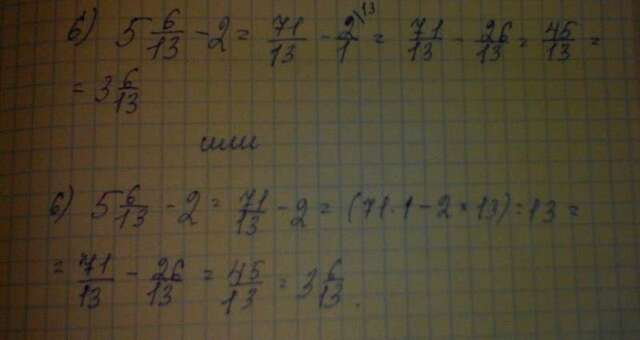 б) 5 6/13 - 2 = 71/13 - 2/1 \13 = 71/13 - 26/13 = 45/13 =
= 3 6/13
или
б) 5 6/13 - 2 = 71/13 - 2 = (71·1 - 2·13):13 =
= 71/13 - 26/13 = 45/13 = 3 6/13.